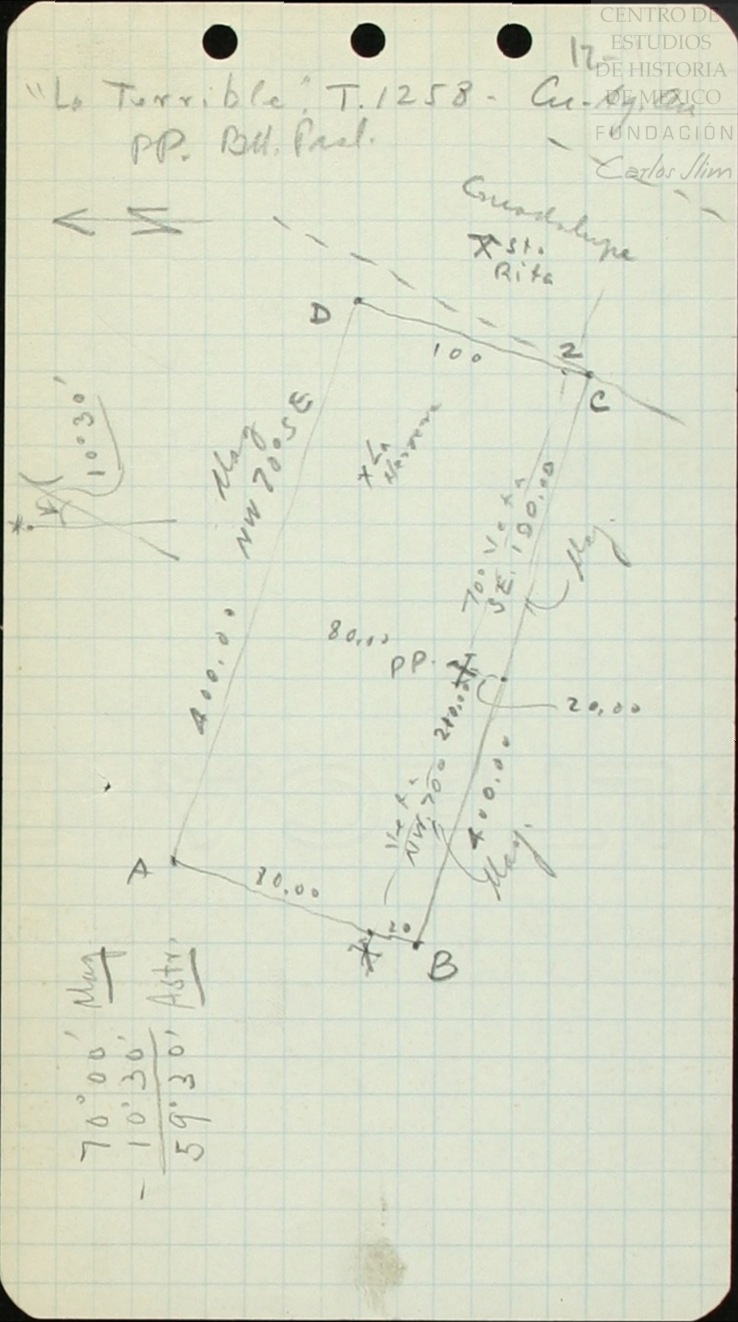 CENTRO DE
ESTUDIOS
DE HISTORIA
DE MÉXICO
FUNDACIÓN
Carlos Slim
17.-
"La Terrible". T.1258 - Cu-Ag.
PP.
Guadalupe
X Sta.
Rita
D
100
2
C
10°30'
Mag
NW 70° SE
X La
80.00
PP.
70° Veta
SE. 190.00
Mag.
400.00
20.00
Veta
NW. 70° 210.00
400.00
Mag.
A
80.00
20
B
70°00' Mag
- 10°30'
59°30' Astr.